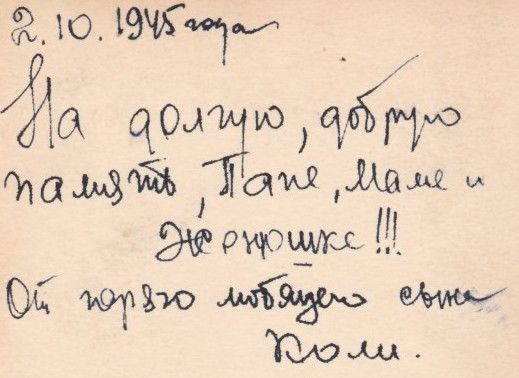 2.10.1945 года
На долгую, добрую
память, Папе, Маме и
Женюшке!!!
От горячо любящего сына
Коли.